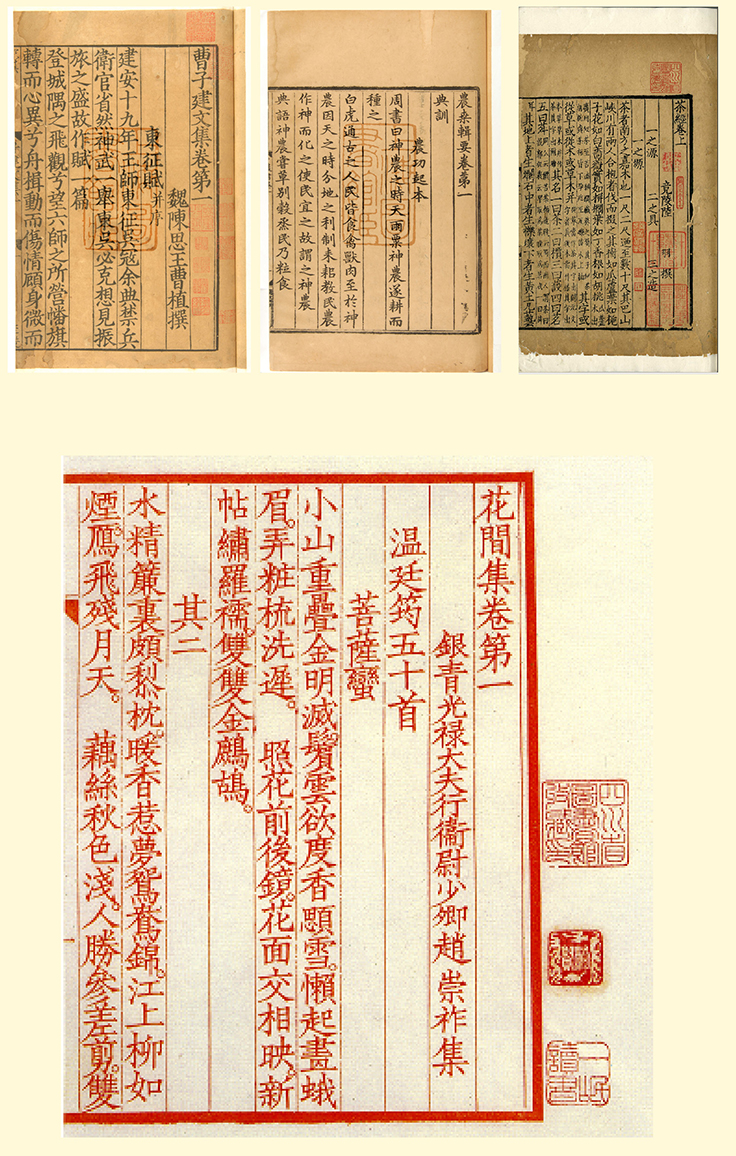 曹子建文集卷第一
魏陳思王曹植撰
東征賦并序
建安十九年王師東征吳冦余典禁兵
衛官省然神武一舉東吳必克想見振
旅之盛故作賦一篇
登城隅之飛觀兮望六師之所營幡旗
轉而心異兮舟揖動而傷情顧身微而
農桒輯要卷第一
典訓
農功起本
周書曰神農之時天雨粟神農遂耕而
種之
白虎通古之人民皆食禽獸肉至於神
農因天之時分地之利制耒耜教民農
作神而化之使民宜之故謂之神農
典語神農嘗草別穀烝民乃粒食
茶經卷上
竟陵陸 羽 撰
一之源 二之具 三之造
一之源
茶者南方之嘉木也一尺二尺迺至數十尺其巴山
峽川有兩人合抱者伐而掇之其樹如瓜蘆葉如梔
子花如白薔薇實如栟櫚葉如丁香根如胡桃
其字或
從草或從木或草木并
其名一曰茶二曰檟三曰蔎四曰茗
五曰荈
其地上者生爛石中者生櫟壤下者生黃土
花間集卷第一
銀青光祿大夫行衞尉少卿趙崇祚集
温廷筠五十首
菩薩蠻
小山重疊金明滅。鬢雲欲度香顋雪。懶起畫蛾
眉。弄粧梳洗遲。 照花前後鏡。花面交相映。新
帖繡羅襦。雙雙金鷓鴣。
其二
水精簾裏頗黎枕。暖香惹夢鴛鴦錦。江上柳如
煙。鴈飛殘月天。 藕絲秋色淺。人勝參差剪。雙